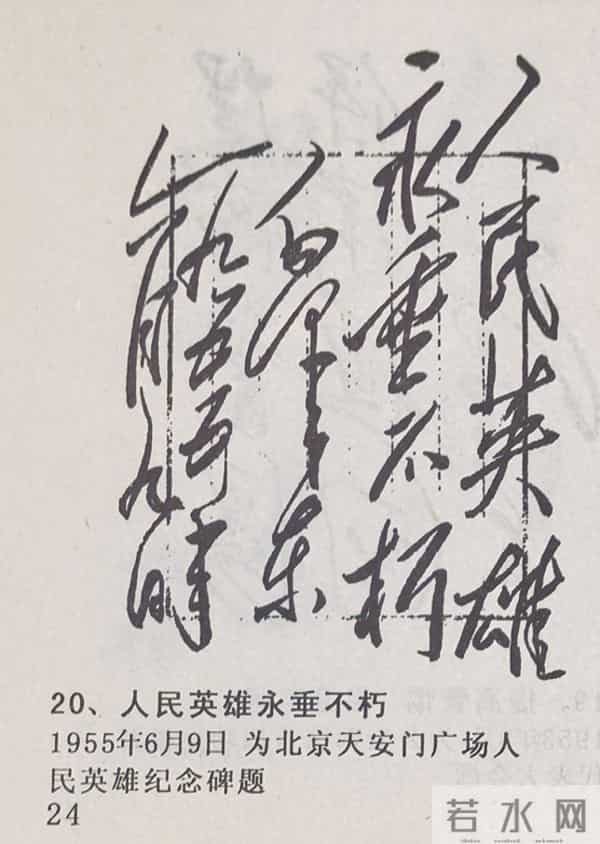 人民英雄
永垂不朽
毛泽东
一九五五年
六月九日
20、人民英雄永垂不朽
1955年6月9日 为北京天安门广场人
民英雄纪念碑题
24
若水网